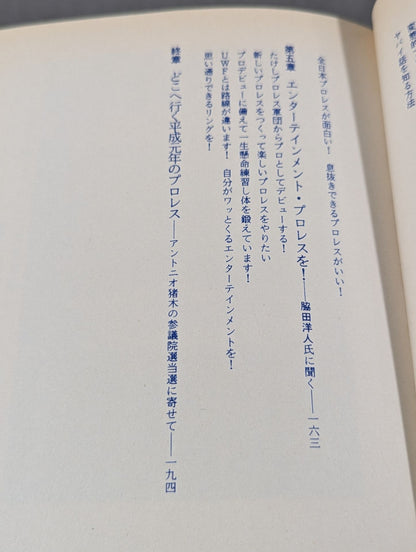 ヤバイ話を知る方法
全日本プロレスが面白い！　息抜きできるプロレスがいい！
第五章　エンターテインメント・プロレスを！――脇田洋人氏に聞く――一六三
たけしプロレス軍団からプロとしてデビューする！
新しいプロレスをつくって楽しいプロレスをやりたい
プロデビューに備えて一生懸命練習し体を鍛えています！
UWFとは路線が違います！　自分がワッとくるエンターテインメントを！
思い通りできるリングを！
終章　どこへ行く平成元年のプロレス――アントニオ猪木の参議院選当選に寄せて――一九四